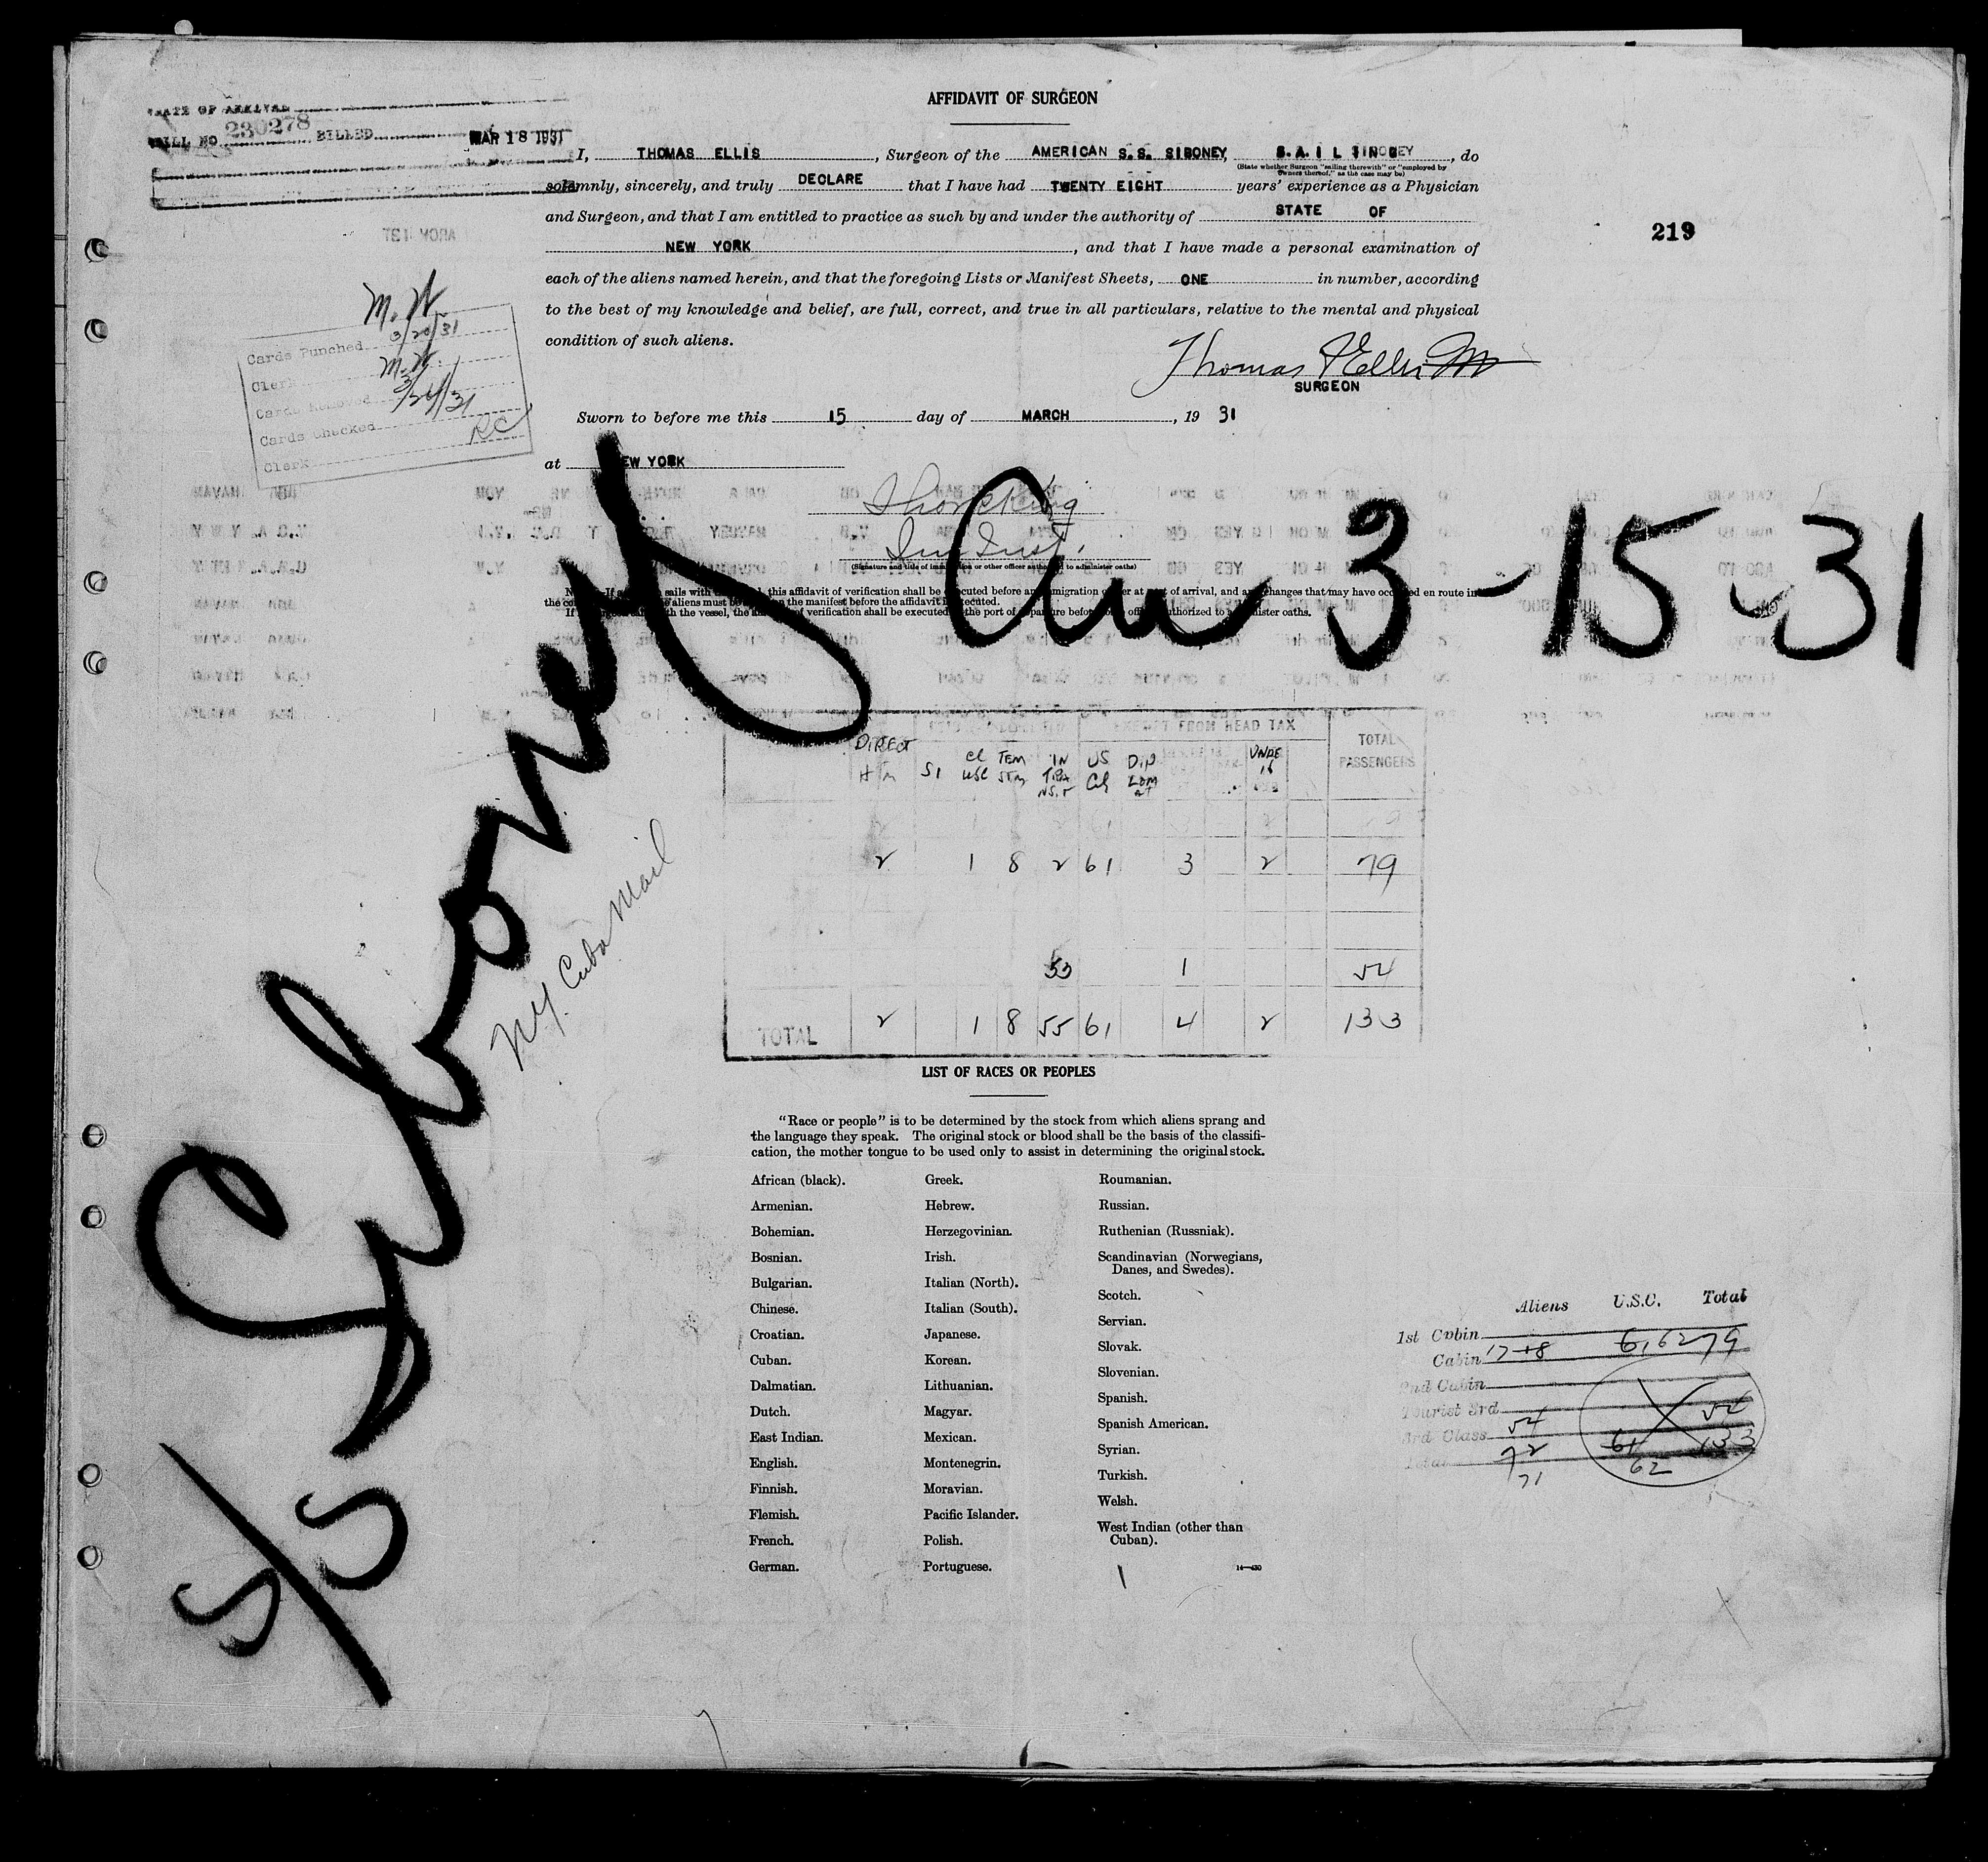 AFFIDAVIT OF SURGEON
DATE OF ARRIVAL
BILL NO 230278 BILLED MAR 18 1931
I, THOMAS ELLIS, Surgeon of the AMERICAN S.S. SIBONEY, SAILING, do
(State whether Surgeon "sailing therewith" or "employed by
Owners thereof," as the case may be)
solemnly, sincerely, and truly DECLARE that I have had TWENTY EIGHT years' experience as a Physician
and Surgeon, and that I am entitled to practice as such by and under the authority of STATE OF
NEW YORK, and that I have made a personal examination of
each of the aliens named herein, and that the foregoing Lists or Manifest Sheets, ONE in number, according
to the best of my knowledge and belief, are full, correct, and true in all particulars, relative to the mental and physical
condition of such aliens.
219
Thomas Ellis
SURGEON
M.W.
Cards Punched 3/20/31
Clerk M.W.
Cards Removed 3/24/31
Cards Checked
Clerk RC
Sworn to before me this 15 day of MARCH, 19 31
at NEW YORK
(Signature and title of immigration or other officer authorized to administer oaths)
S/S Siboney Arr 3-15-31
N.Y. Cuba Mail
EXEMPT FROM HEAD TAX
DIRECT HTM SI CL USC TEM STM IN TRANS.T US CIT DIPLOMAT UNDE 16 TOTAL PASSENGERS
2 1 8 2 61 3 2 79
53 1 54
TOTAL 2 1 8 55 61 4 2 133
LIST OF RACES OR PEOPLES
"Race or people" is to be determined by the stock from which aliens sprang and
the language they speak. The original stock or blood shall be the basis of the classifi-
cation, the mother tongue to be used only to assist in determining the original stock.
African (black).
Armenian.
Bohemian.
Bosnian.
Bulgarian.
Chinese.
Croatian.
Cuban.
Dalmatian.
Dutch.
East Indian.
English.
Finnish.
Flemish.
French.
German.
Greek.
Hebrew.
Herzegovinian.
Irish.
Italian (North).
Italian (South).
Japanese.
Korean.
Lithuanian.
Magyar.
Mexican.
Montenegrin.
Moravian.
Pacific Islander.
Polish.
Portuguese.
Roumanian.
Russian.
Ruthenian (Russniak).
Scandinavian (Norwegians,
Danes, and Swedes).
Scotch.
Servian.
Slovak.
Slovenian.
Spanish.
Spanish American.
Syrian.
Turkish.
Welsh.
West Indian (other than
Cuban).
Aliens U.S.C. Total
1st Cabin
Cabin 17 18 61 62 79
2nd Cabin
Tourist 3rd
3rd Class 54 54
Total 72 61 133
71 62